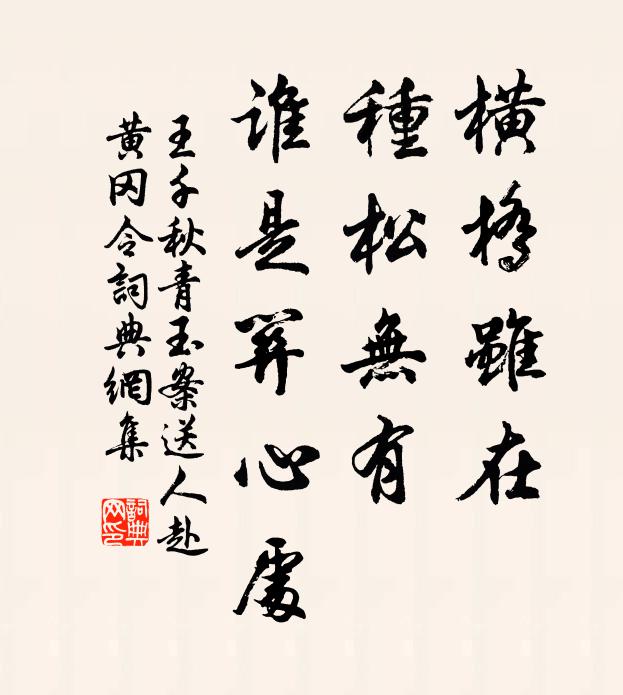 橫橋雖在
種松無有
誰是關心處
王千秋青玉案送人赴
黄冈令詞典網集
詞典網印